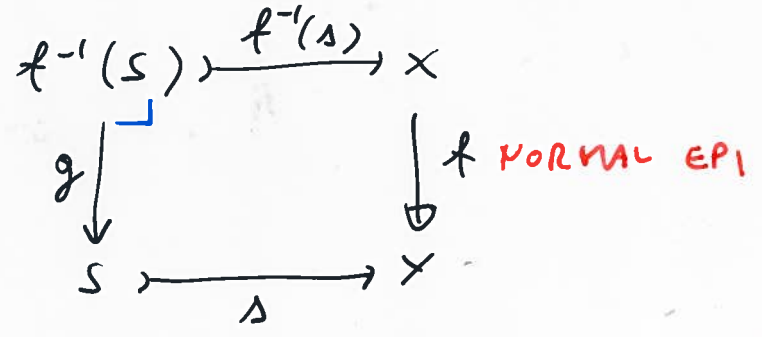 f⁻¹(s)
f⁻¹(S) X
g f NORMAL EPI
S Y
s